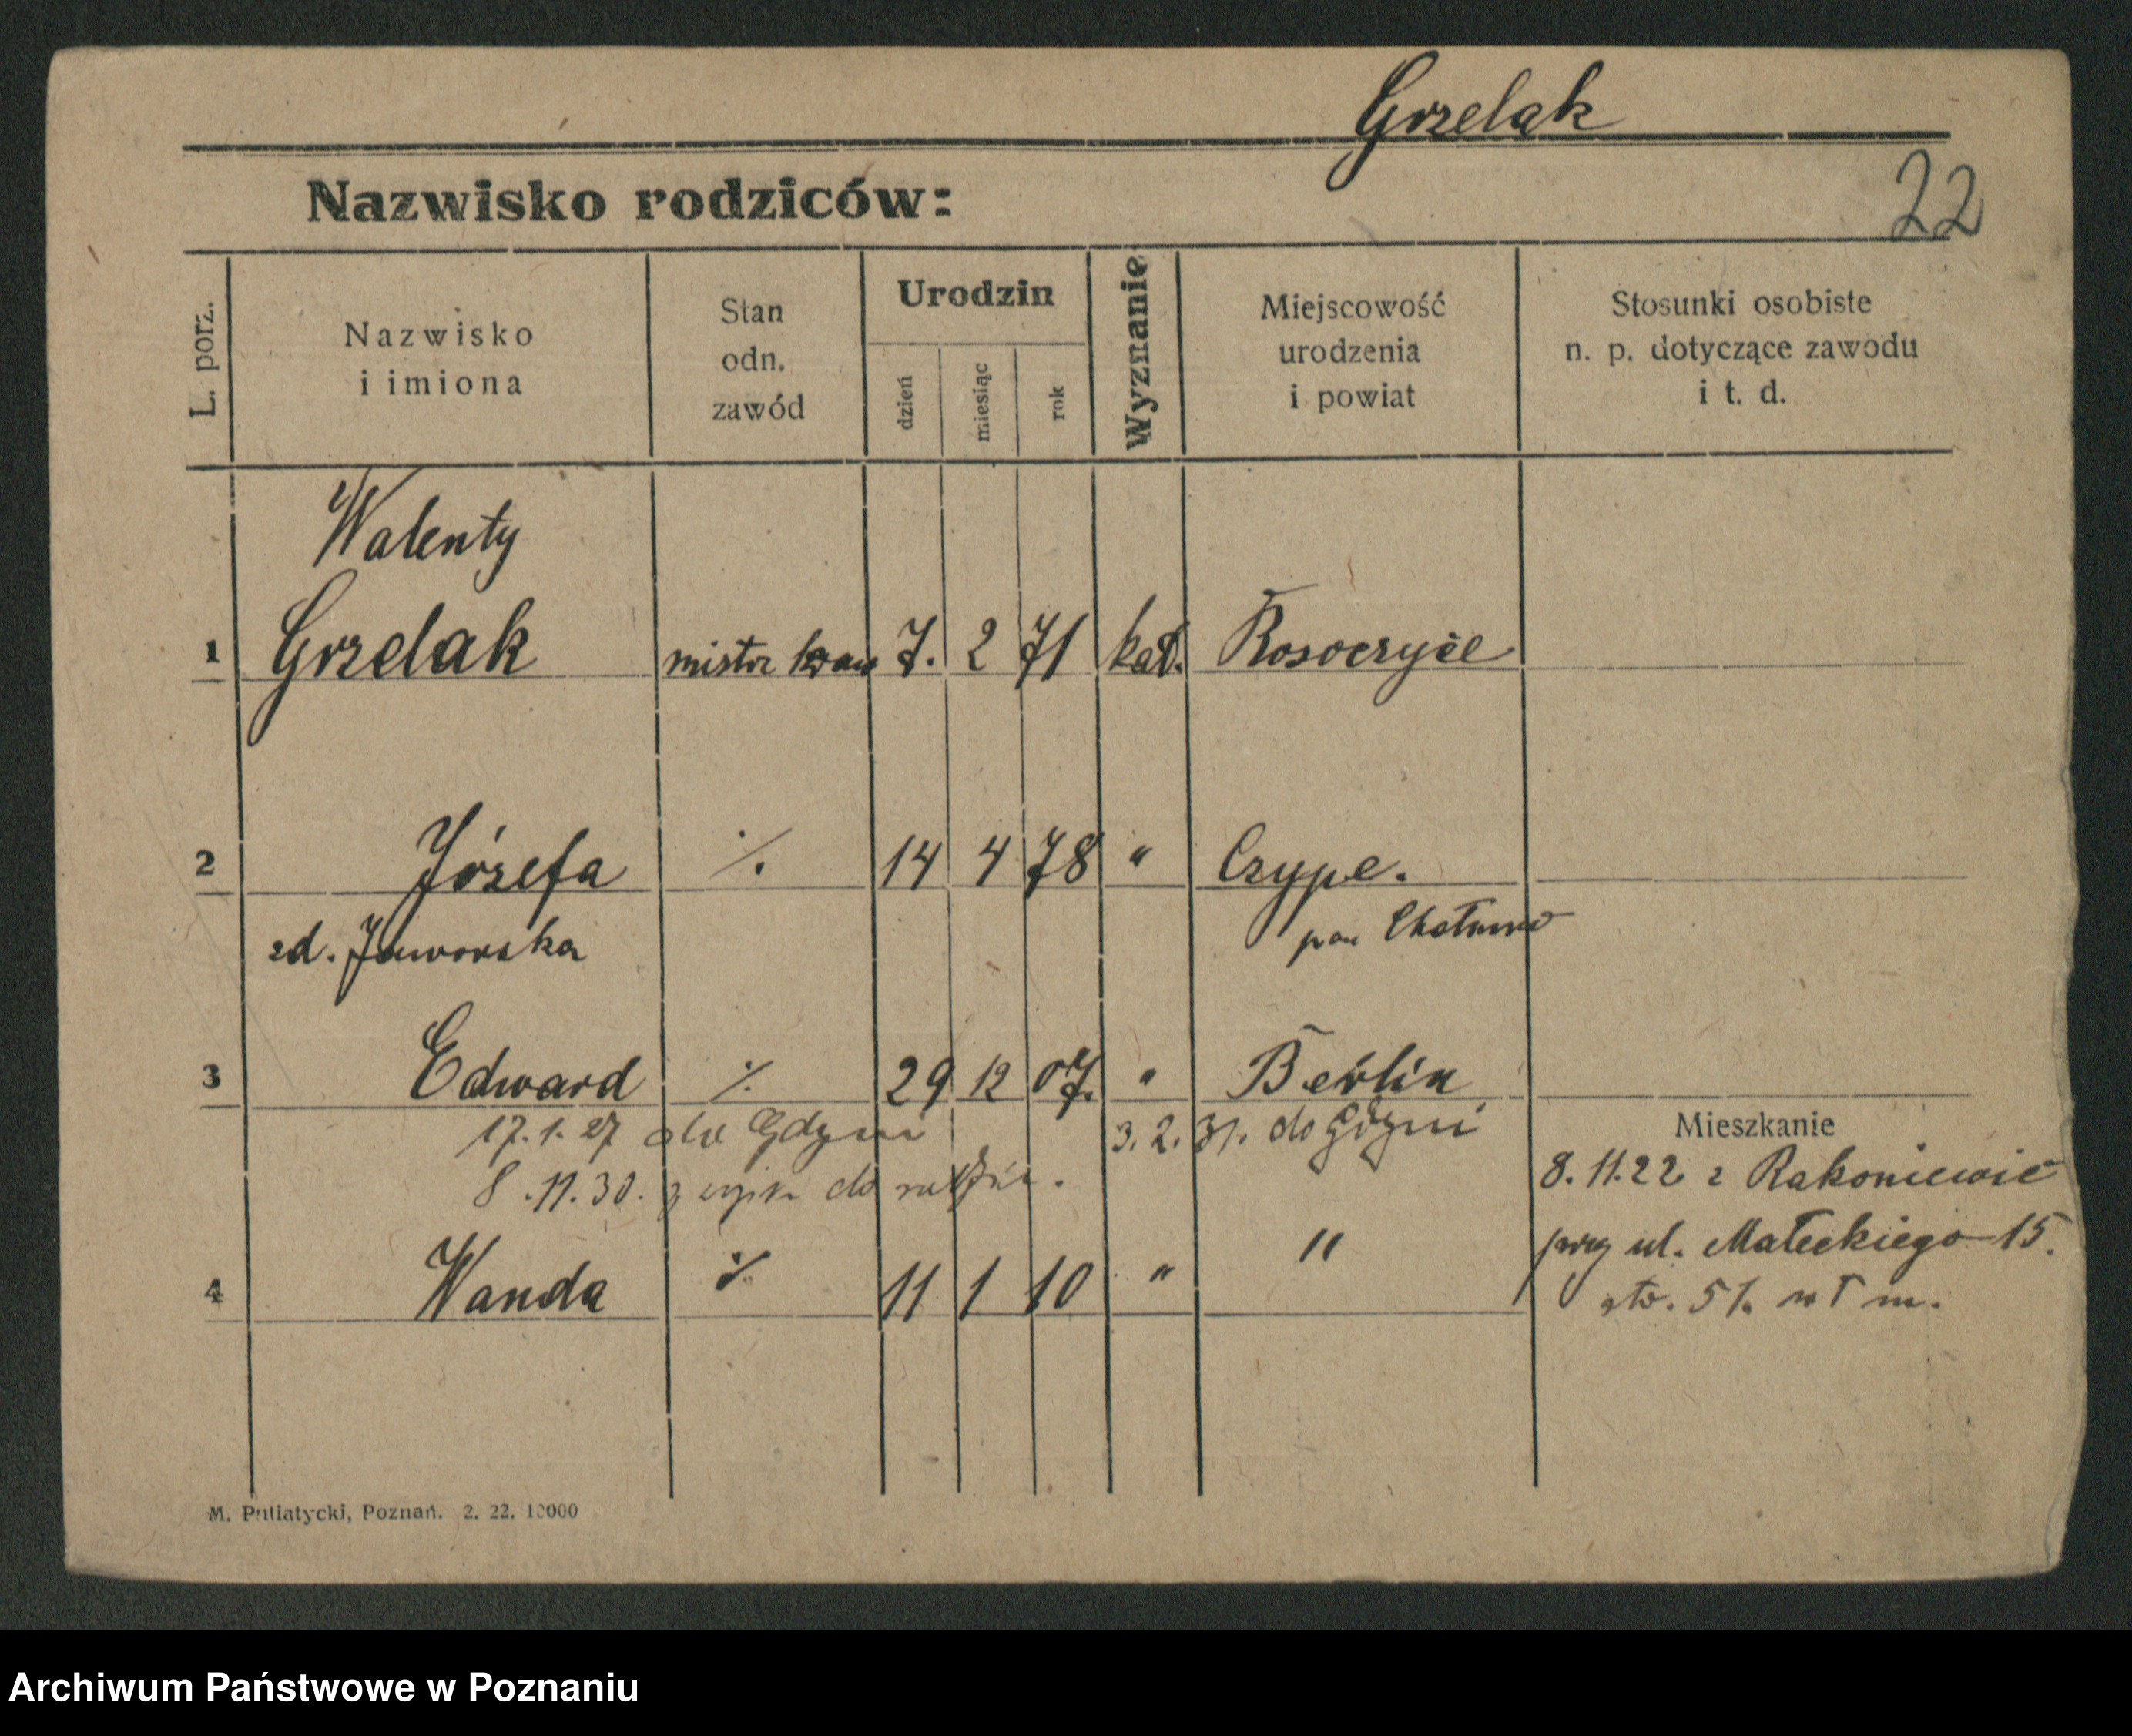 Grzelak
22
Nazwisko rodziców:
L. porz.
Nazwisko
i imiona
Stan
odn.
zawód
Urodzin
dzień
miesiąc
rok
Wyznanie
Miejscowość
urodzenia
i powiat
Stosunki osobiste
n. p. dotyczące zawodu
i t. d.
Walenty
1 Grzelak mistrz kraw 7. 2 71 kat. Rosoczyce
2 Józefa % 14 4 78 " Czype.
zd. Jaworska pow
3 Edward % 29 12 07. " Berlin
17.1.27 do Gdyni 3.2.31. do Gdyni
8.11.30. z do
Mieszkanie
8.11.22 z Rakoniewic
przy ul. Małeckiego 15.
4 Wanda % 11 1 10 " "
M. Putiatycki, Poznań. 2. 22. 10000
Archiwum Państwowe w Poznaniu